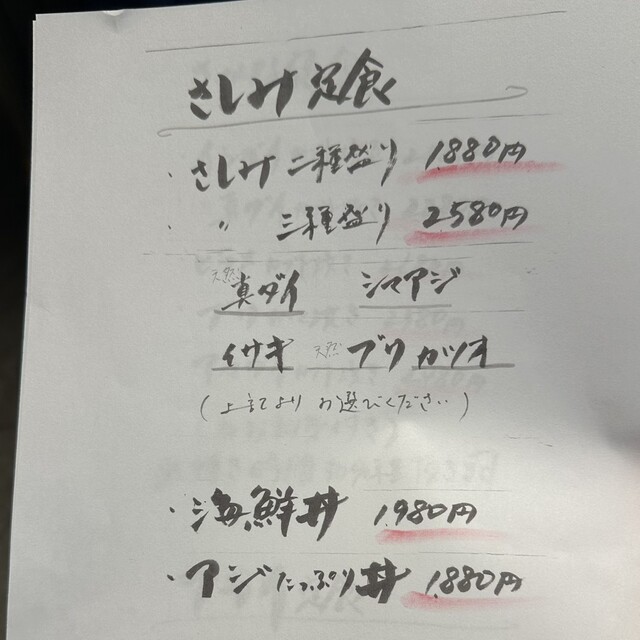 さしみ定食
・さしみ二種盛り 1880円
・〃 三種盛り 2580円
天然 真ダイ シマアジ
イサギ 天然 ブリ カツオ
(上記より お選びください)
・海鮮丼 1,980円
・アジたっぷり丼 1,880円